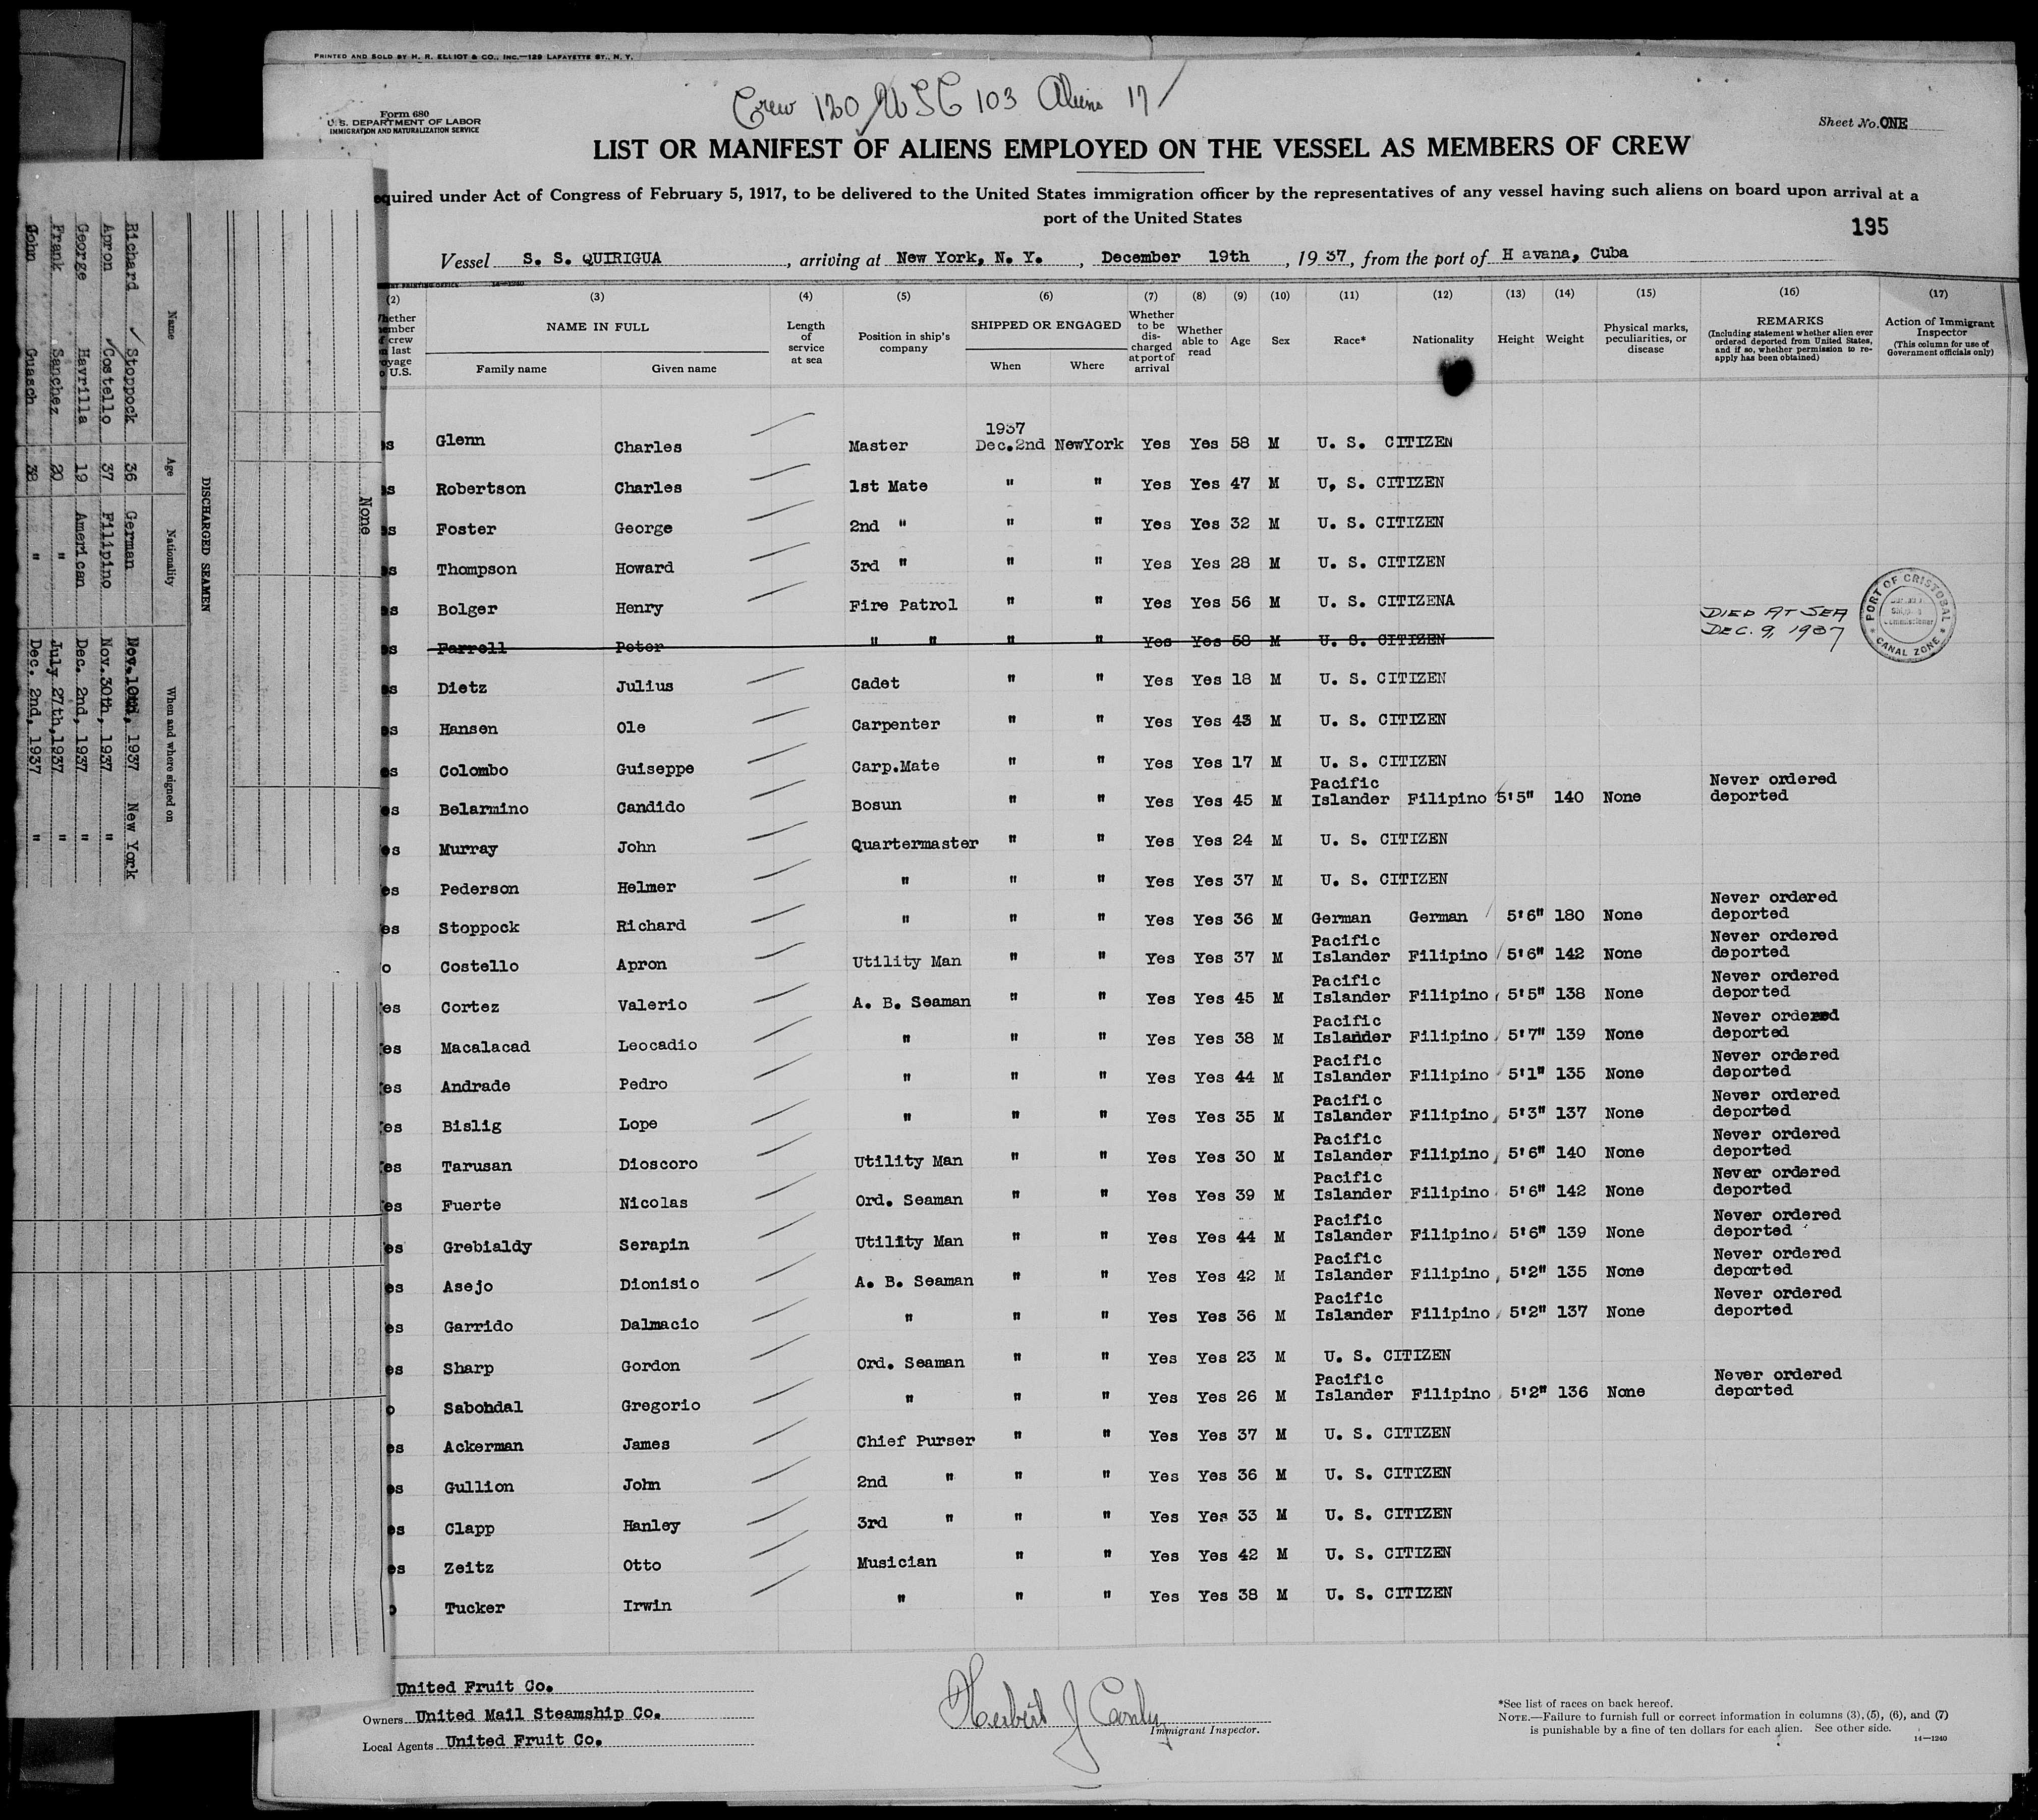 PRINTED AND SOLD BY H. R. ELLIOT & CO., INC.—129 LAFAYETTE ST., N. Y.
Crew 120 USC 103 Aliens 17
Form 680
U. S. DEPARTMENT OF LABOR
IMMIGRATION AND NATURALIZATION SERVICE
Sheet No. ONE
LIST OR MANIFEST OF ALIENS EMPLOYED ON THE VESSEL AS MEMBERS OF CREW
equired under Act of Congress of February 5, 1917, to be delivered to the United States immigration officer by the representatives of any vessel having such aliens on board upon arrival at a
port of the United States
195
Vessel S. S. QUIRIGUA, arriving at New York, N. Y., December 19th, 1937, from the port of H avana, Cuba
(2) (3) (4) (5) (6) (7) (8) (9) (10) (11) (12) (13) (14) (15) (16) (17)
hether ember f crew n last oyage o U.S. NAME IN FULL Family name Given name Length of service at sea Position in ship's company SHIPPED OR ENGAGED When Where Whether to be discharged at port of arrival Whether able to read Age Sex Race* Nationality Height Weight Physical marks, peculiarities, or disease REMARKS (Including statement whether alien ever ordered deported from United States, and if so, whether permission to re-apply has been obtained) Action of Immigrant Inspector (This column for use of Government officials only)
es Glenn Charles Master 1937 Dec.2nd NewYork Yes Yes 58 M U. S. CITIZEN
es Robertson Charles 1st Mate " " Yes Yes 47 M U, S. CITIZEN
es Foster George 2nd " " " Yes Yes 32 M U. S. CITIZEN
es Thompson Howard 3rd " " " Yes Yes 28 M U. S. CITIZEN
es Bolger Henry Fire Patrol " " Yes Yes 56 M U. S. CITIZENA
es Farrell Peter " " " " Yes Yes 58 M U. S. CITIZEN DIED AT SEA DEC. 9, 1937
PORT OF CRISTOBAL Shipping Commissioner CANAL ZONE
es Dietz Julius Cadet " " Yes Yes 18 M U. S. CITIZEN
es Hansen Ole Carpenter " " Yes Yes 43 M U. S. CITIZEN
es Colombo Guiseppe Carp.Mate " " Yes Yes 17 M U. S. CITIZEN
es Belarmino Candido Bosun " " Yes Yes 45 M Pacific Islander Filipino 5'5" 140 None Never ordered deported
es Murray John Quartermaster " " Yes Yes 24 M U. S. CITIZEN
es Pederson Helmer " " " Yes Yes 37 M U. S. CITIZEN
es Stoppock Richard " " " Yes Yes 36 M German German 5'6" 180 None Never ordered deported
o Costello Apron Utility Man " " Yes Yes 37 M Pacific Islander Filipino 5'6" 142 None Never ordered deported
es Cortez Valerio A. B. Seaman " " Yes Yes 45 M Pacific Islander Filipino 5'5" 138 None Never ordered deported
es Macalacad Leocadio " " " Yes Yes 38 M Pacific Islander Filipino 5'7" 139 None Never ordered deported
es Andrade Pedro " " " Yes Yes 44 M Pacific Islander Filipino 5'1" 135 None Never ordered deported
es Bislig Lope " " " Yes Yes 35 M Pacific Islander Filipino 5'3" 137 None Never ordered deported
es Tarusan Dioscoro Utility Man " " Yes Yes 30 M Pacific Islander Filipino 5'6" 140 None Never ordered deported
es Fuerte Nicolas Ord. Seaman " " Yes Yes 39 M Pacific Islander Filipino 5'6" 142 None Never ordered deported
es Grebialdy Serapin Utility Man " " Yes Yes 44 M Pacific Islander Filipino 5'6" 139 None Never ordered deported
es Asejo Dionisio A. B. Seaman " " Yes Yes 42 M Pacific Islander Filipino 5'2" 135 None Never ordered deported
es Garrido Dalmacio " " " Yes Yes 36 M Pacific Islander Filipino 5'2" 137 None Never ordered deported
es Sharp Gordon Ord. Seaman " " Yes Yes 23 M U. S. CITIZEN
o Sabondal Gregorio " " " Yes Yes 26 M Pacific Islander Filipino 5'2" 136 None Never ordered deported
es Ackerman James Chief Purser " " Yes Yes 37 M U. S. CITIZEN
es Gullion John 2nd " " " Yes Yes 36 M U. S. CITIZEN
es Clapp Hanley 3rd " " " Yes Yes 33 M U. S. CITIZEN
es Zeitz Otto Musician " " Yes Yes 42 M U. S. CITIZEN
o Tucker Irwin " " " Yes Yes 38 M U. S. CITIZEN
United Fruit Co.
Owners United Mail Steamship Co.
Local Agents United Fruit Co.
Herbert J Conly
Immigrant Inspector.
*See list of races on back hereof.
NOTE.—Failure to furnish full or correct information in columns (3), (5), (6), and (7)
is punishable by a fine of ten dollars for each alien. See other side.
14—1240
None
DISCHARGED SEAMEN
Name Age Nationality When and where signed on
Richard Stoppock 36 German Nov.10th, 1937 New York
Apron Costello 37 Filipino Nov.30th, 1937 "
George Havrilla 19 American Dec. 2nd, 1937 "
Frank Sanchez 20 " July 27th, 1937 "
John Guasch 38 " Dec. 2nd, 1937 "